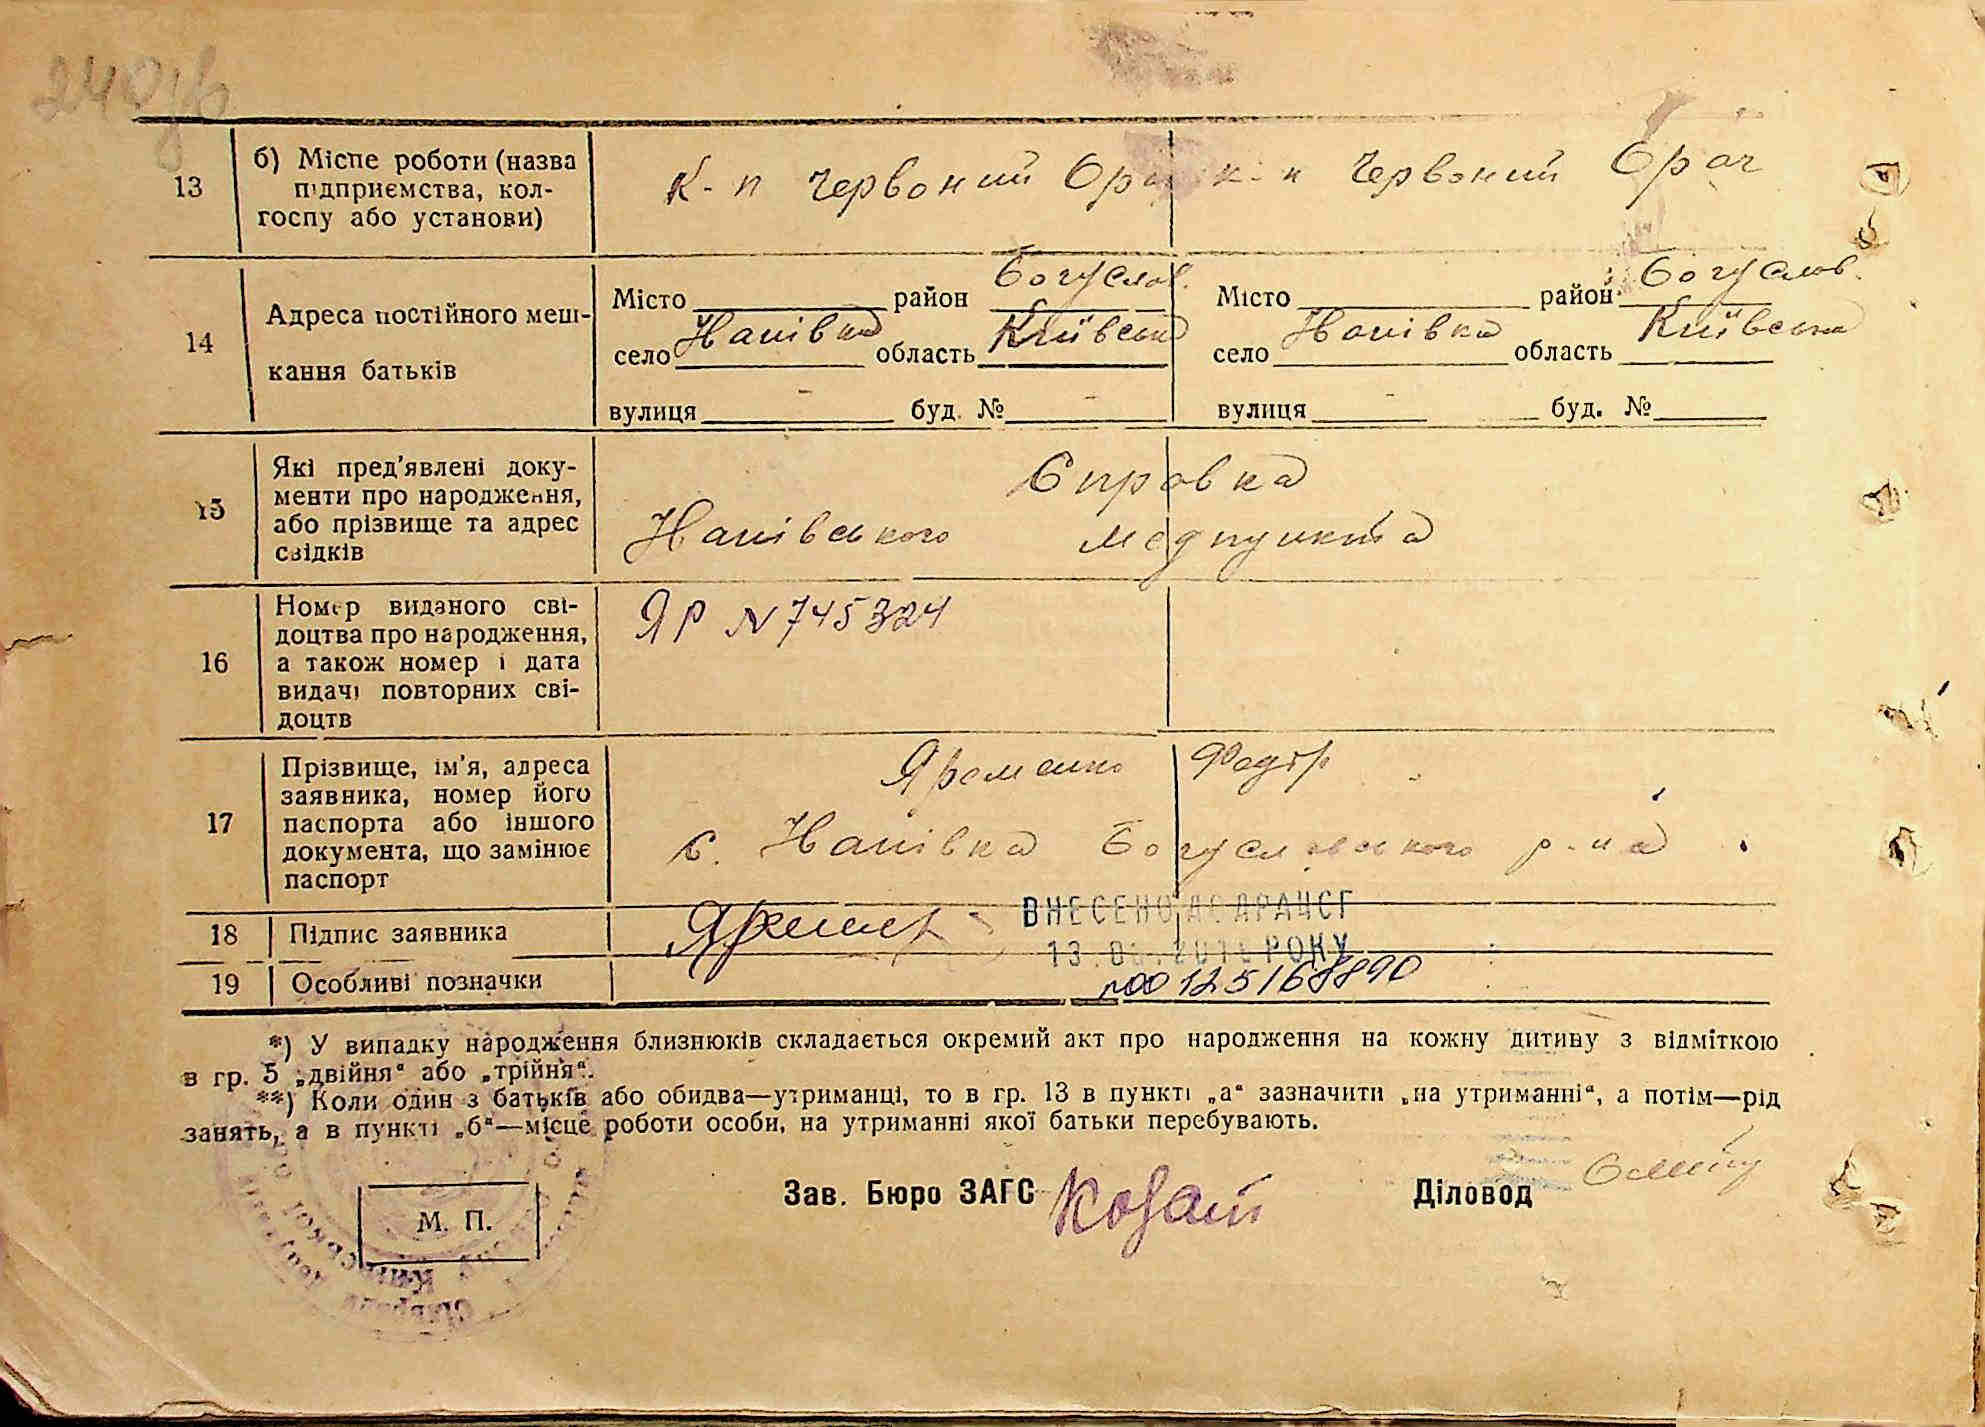 13
б) Місце роботи (назва
підприємства, кол-
госпу або установи)
К-п Червоний Орач
к-п Червоний Орач
14
Адреса постійного меш-
кання батьків
Місто район Богуслав.
село область Київська
вулиця - буд. № -
Місто район Богуслав.
село область Київська
вулиця - буд. №
15
Які пред'явлені доку-
менти про народження,
або прізвище та адрес
свідків
Справка
медпункта
16
Номер виданого сві-
доцтва про народження,
а також номер і дата
видачі повторних сві-
доцтв
ЯР N 745324
17
Прізвище, ім'я, адреса
заявника, номер його
паспорта або іншого
документа, що замінює
паспорт
Яременко Федір
с. Богуславського р-на
18
Підпис заявника
ВНЕСЕНО ДО ДРАЦСГ
РОКУ
19
Особливі позначки
00125168890
*) У випадку народження близнюків складається окремий акт про народження на кожну дитину з відміткою
в гр. 5 „двійня“ або „трійня“.
**) Коли один з батьків або обидва—утриманці, то в гр. 13 в пункті „а“ зазначити „на утриманні“, а потім—рід
занять, а в пункті „б“—місце роботи особи, на утриманні якої батьки перебувають.
Зав. Бюро ЗАГС Козат
Діловод
М. П.